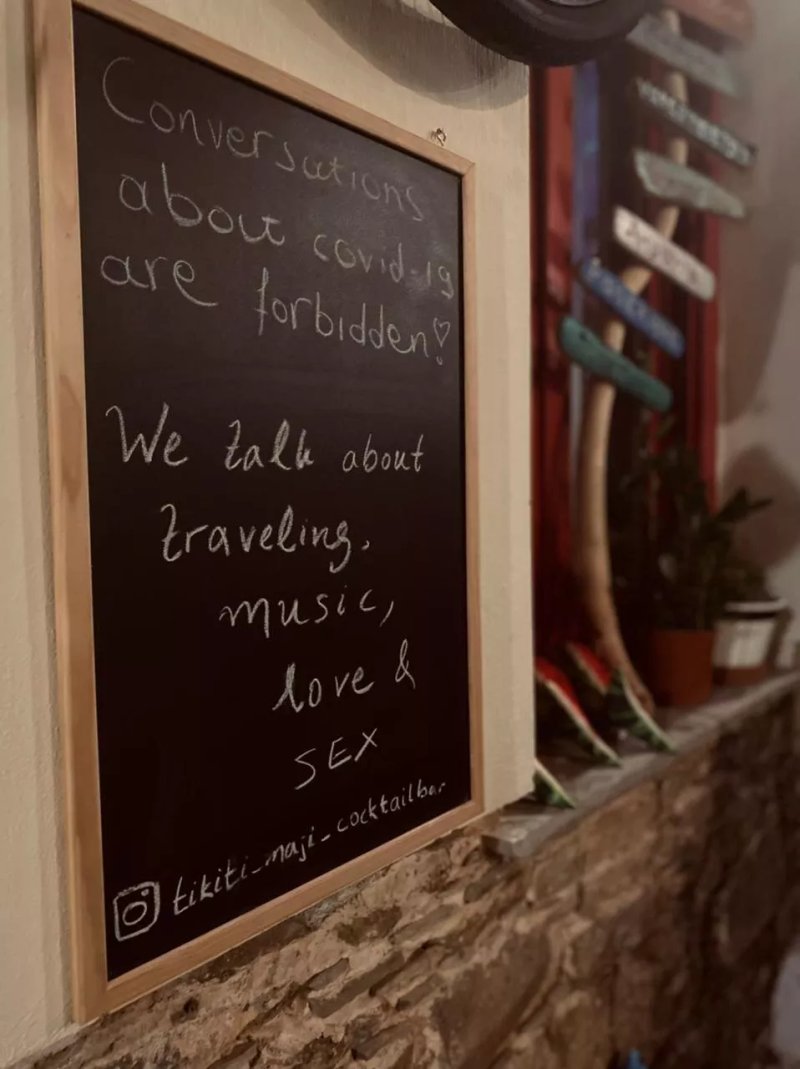 Conversations
about covid-19
are forbidden!
We talk about
traveling,
music,
love &
SEX
tikiti_maji_cocktailbar